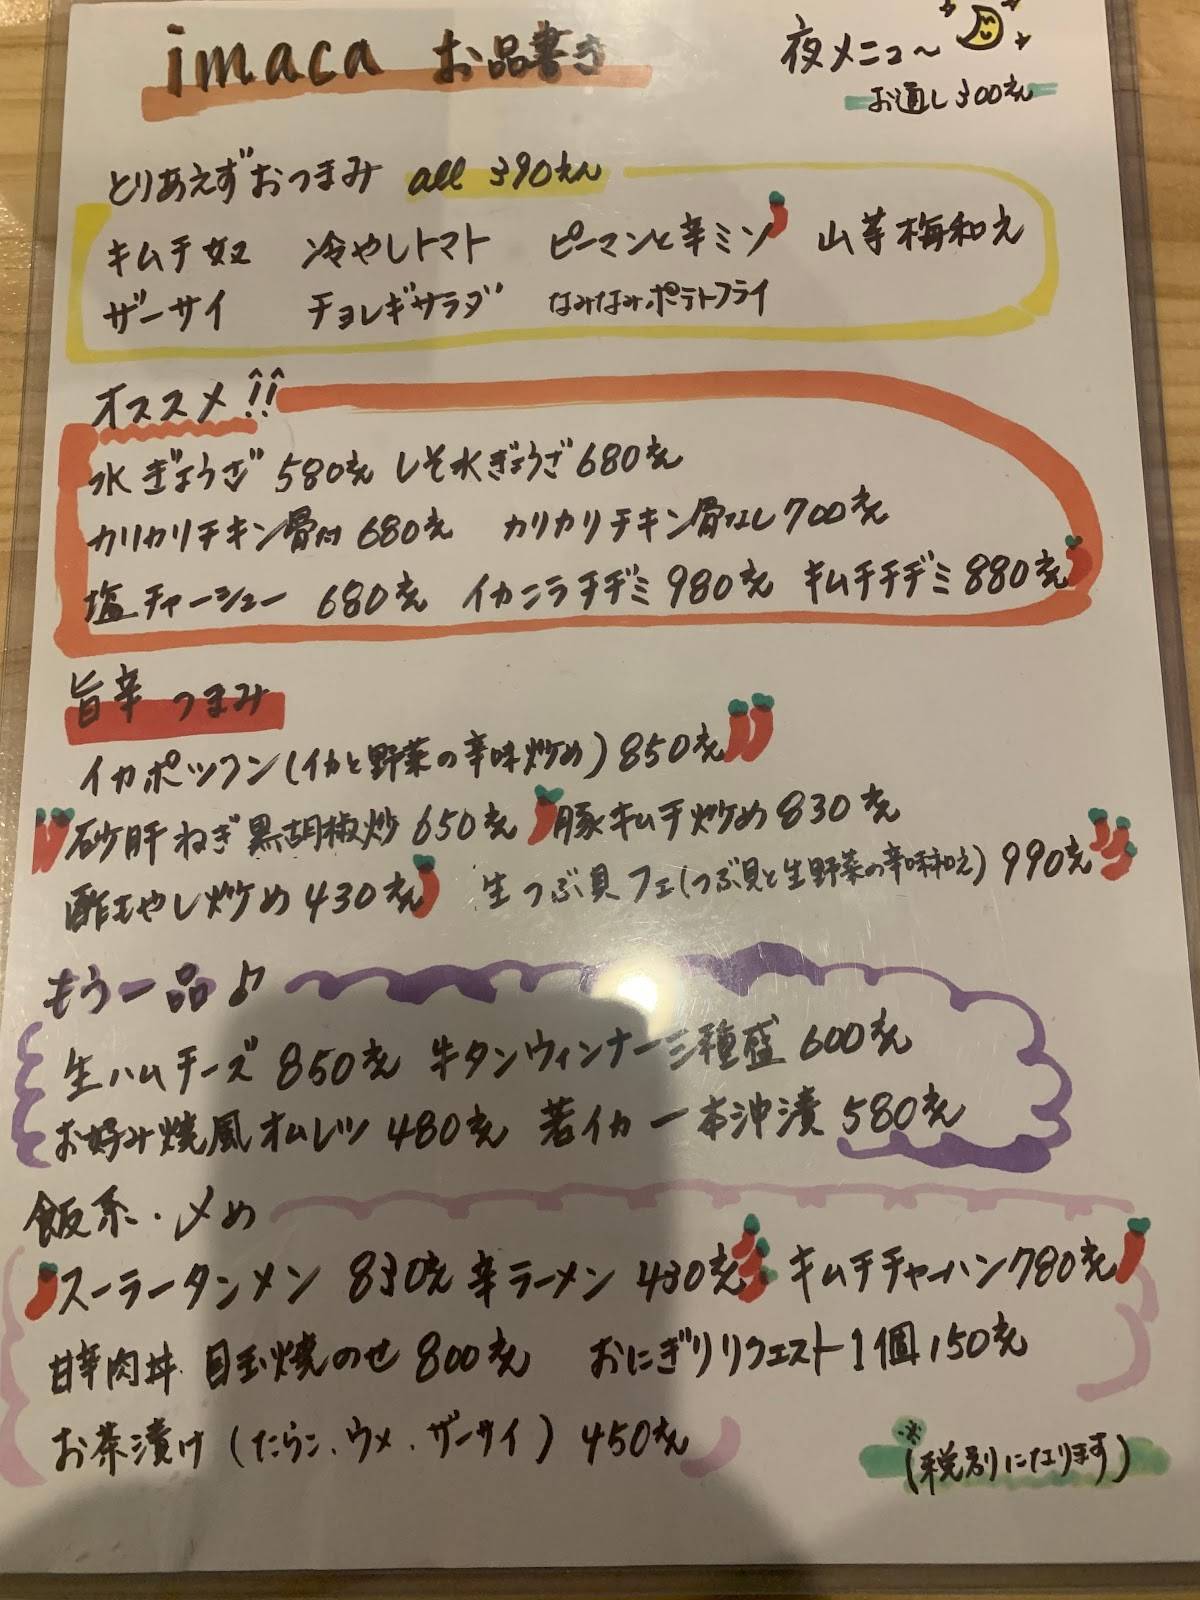 imaca お品書き
夜メニュ～
お通し300えん
とりあえずおつまみ all 390えん
キムチ奴 冷やしトマト ピーマンと辛ミソ 山芋梅和え
ザーサイ チョレギサラダ なみなみポテトフライ
オススメ!!
水ぎょうざ 580えん しそ水ぎょうざ 680えん
カリカリチキン骨付 680えん カリカリチキン骨なし 700えん
塩チャーシュー 680えん イカニラチヂミ 980えん キムチチヂミ 880えん
旨辛つまみ
イカポックン(イカと野菜の辛味炒め) 850えん
砂肝ねぎ黒胡椒炒 650えん 豚キムチ炒め 830えん
酢もやし炒め 430えん 生つぶ貝フェ(つぶ貝と生野菜の辛味和え) 990えん
もう一品♪
生ハムチーズ 850えん 牛タンウィンナー三種盛 600えん
お好み焼風オムレツ 480えん 若イカ一本沖漬 580えん
飯系・〆め
スーラータンメン 830えん 辛ラーメン 430えん キムチチャーハン 780えん
甘辛肉丼 目玉焼のせ 800えん おにぎりリクエスト1個 150えん
お茶漬け(たらこ、ウメ、ザーサイ) 450えん
※(税別になります)